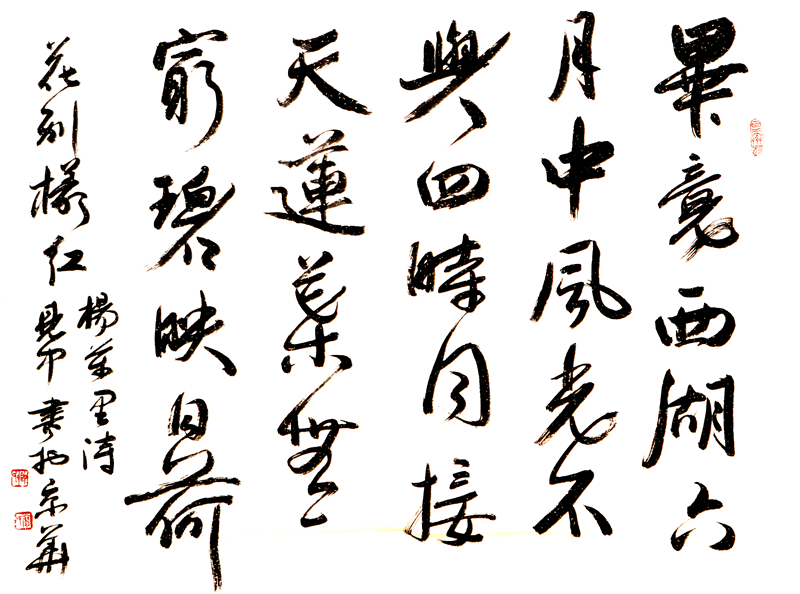 畢竟西湖六
月中風光不
與四時同接
天蓮葉無
窮碧映日荷
花別樣紅
楊萬里詩
書於京華